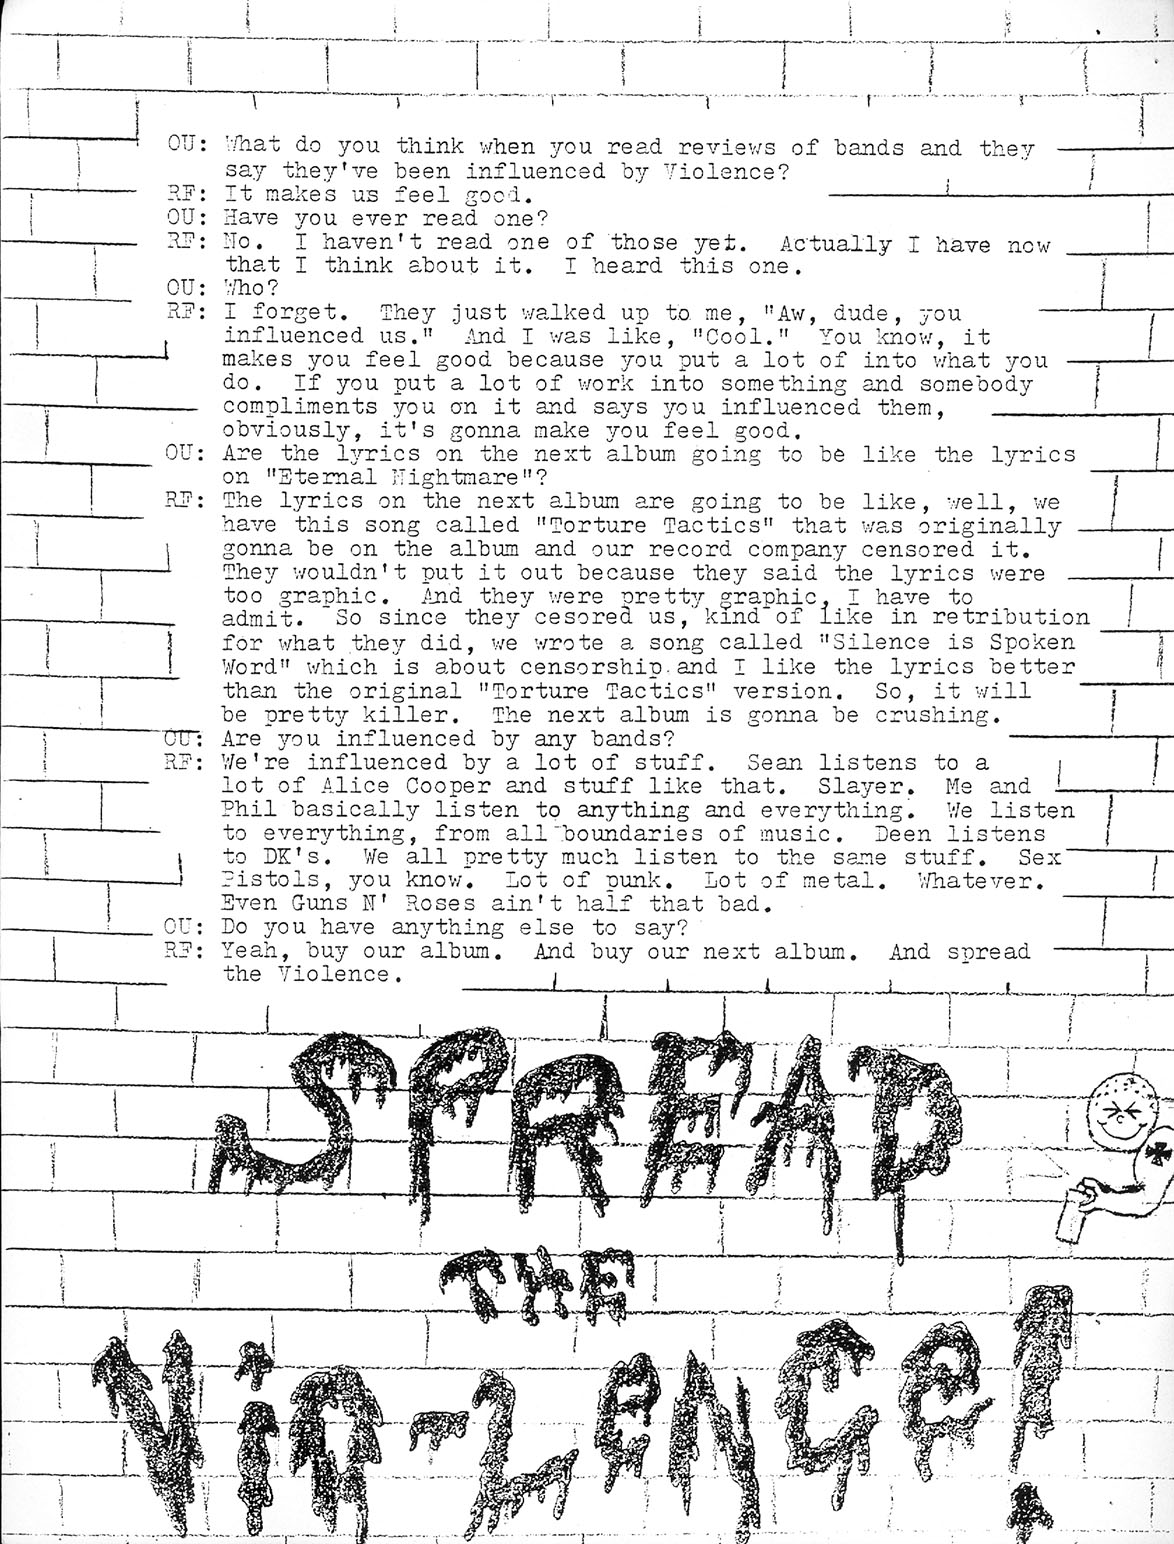 OU: What do you think when you read reviews of bands and they
say they've been influenced by Violence?
RF: It makes us feel good.
OU: Have you ever read one?
RF: No. I haven't read one of those yet. Actually I have now
that I think about it. I heard this one.
OU: Who?
RF: I forget. They just walked up to me, "Aw, dude, you
influenced us." And I was like, "Cool." You know, it
makes you feel good because you put a lot of into what you
do. If you put a lot of work into something and somebody
compliments you on it and says you influenced them,
obviously, it's gonna make you feel good.
OU: Are the lyrics on the next album going to be like the lyrics
on "Eternal Nightmare"?
RF: The lyrics on the next album are going to be like, well, we
have this song called "Torture Tactics" that was originally
gonna be on the album and our record company censored it.
They wouldn't put it out because they said the lyrics were
too graphic. And they were pretty graphic, I have to
admit. So since they cesored us, kind of like in retribution
for what they did, we wrote a song called "Silence is Spoken
Word" which is about censorship and I like the lyrics better
than the original "Torture Tactics" version. So, it will
be pretty killer. The next album is gonna be crushing.
OU: Are you influenced by any bands?
RF: We're influenced by a lot of stuff. Sean listens to a
lot of Alice Cooper and stuff like that. Slayer. Me and
Phil basically listen to anything and everything. We listen
to everything, from all boundaries of music. Deen listens
to DK's. We all pretty much listen to the same stuff. Sex
Pistols, you know. Lot of punk. Lot of metal. Whatever.
Even Guns N' Roses ain't half that bad.
OU: Do you have anything else to say?
RF: Yeah, buy our album. And buy our next album. And spread
the Violence.
SPREAD
THE
ViO-LeNCe!